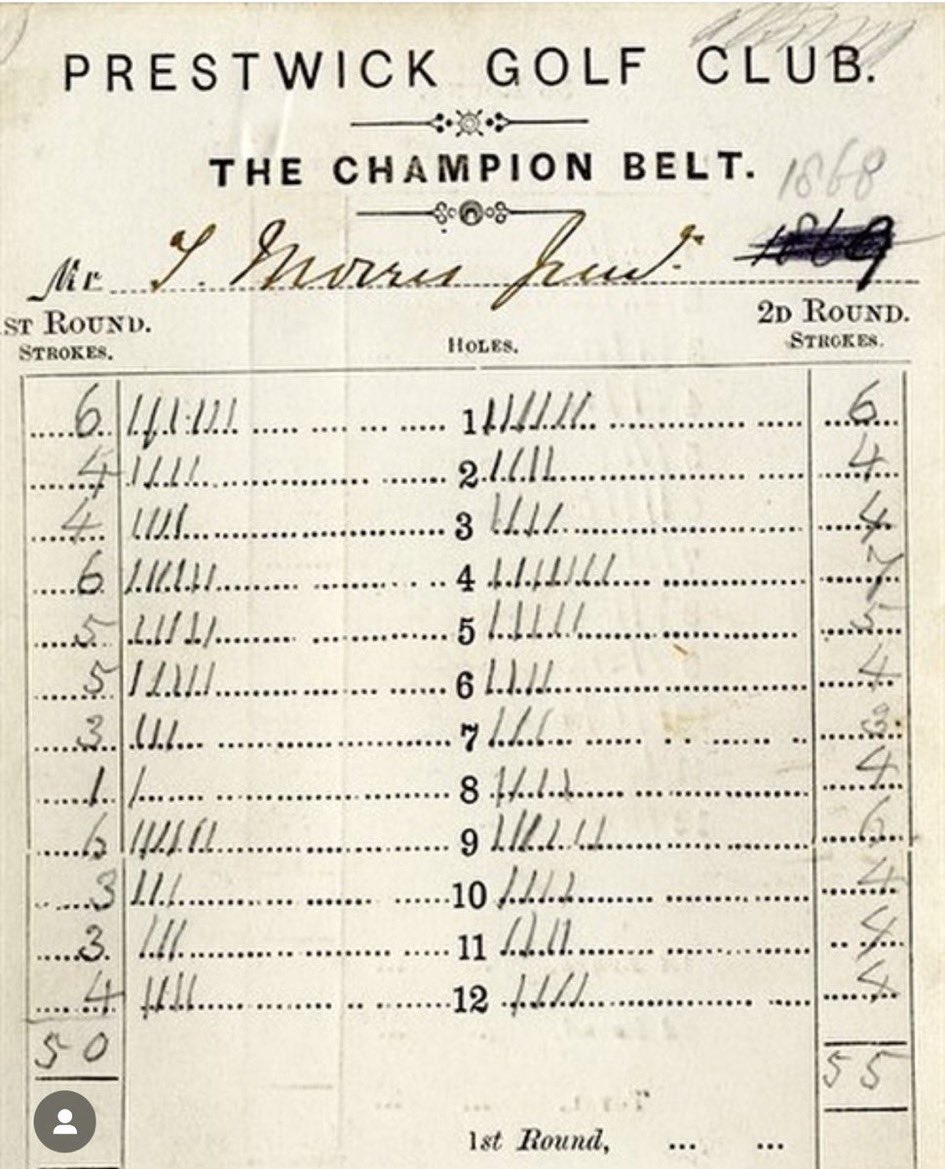 PRESTWICK GOLF CLUB.
THE CHAMPION BELT.
1868
Mr T. Morris Junr. 1869
ST ROUND. 2D ROUND.
STROKES. HOLES. STROKES.
6 1 6
4 2 4
4 3 4
6 4 7
5 5 5
5 6 4
3 7 3
1 8 4
6 9 6
3 10 4
3 11 4
4 12 4
50 55
1st Round, ... ...